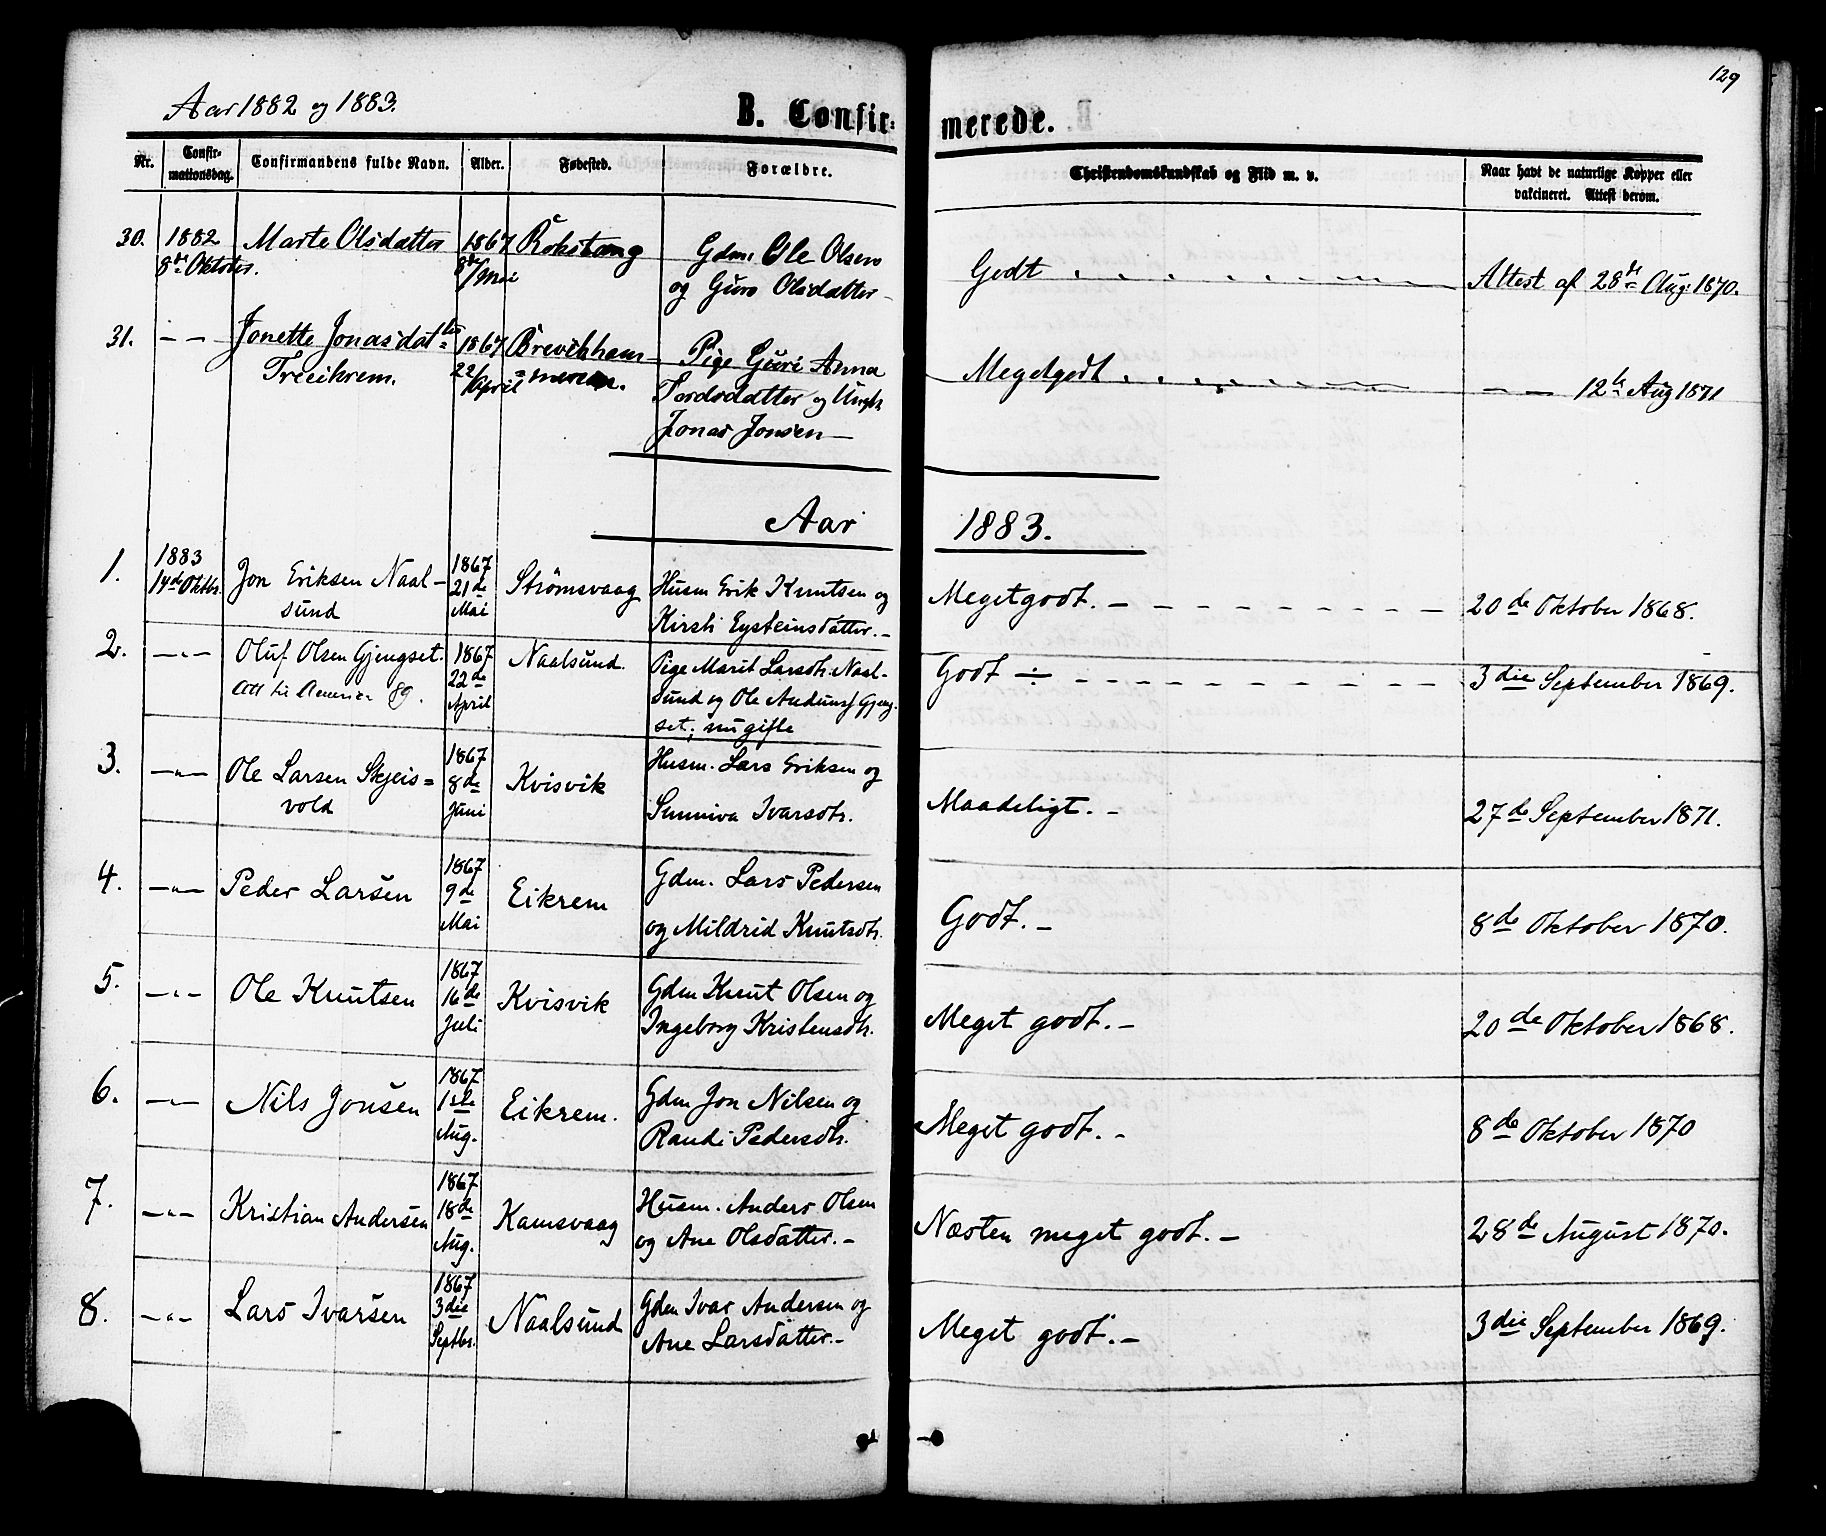 129
Aar 1882 og 1883.
B. Confirmerede.
Nr. Confirmationsdag. Confirmandens fulde Navn. Alder. Fødested. Forældre. Christendomskundskab og Flid m. v. Naar havt de naturlige Kopper eller vakcineret. Attest derom.
30. 1882 Marte Olsdatter 1867 Rokstang Gdm. Ole Olsen Godt Attest af 28de Aug. 1870.
8de Oktober. 8de/Mai og Guro Olsdatter
31. — — Jonette Jonasdatter 1867 Brevikham- Pige Guri Anna Megetgodt — — 12te Aug 1871
Treeikrem. 22/April meren. Tordsdatter og Ungk.
Jonas Jonsen —
Aar 1883.
1. 1883 Jon Eriksen Naal- 1867 Strömsvaag Husm Erik Knutsen og Megetgodt. — 20de Oktober 1868.
14de Oktbr. sund 21de Mai Kirsti Eysteinsdatter. –
2. — „ — Oluf Olsen Gjengset. 1867 Naalsund. Pige Marit Larsdtr. Naal- Godt ÷ 3die September 1869.
Att til America 89. 22de April sund og Ole Andersf Gjeng-
set; nu gifte
3. — „ — Ole Larsen Skjeis= 1867 Kvisvik Husm. Lars Eriksen og Maadeligt. – 27de September 1871.
vold 8de Juni Sunniva Ivarsdtr.
4. — „ — Peder Larsen 1867 Eikrem Gdm. Lars Pedersen Godt. – 8de Oktober 1870.
9de Mai og Mildrid Knutsdtr.
5. — „ — Ole Knutsen 1867 Kvisvik Gdm Knut Olsen og Meget godt. – 20de Oktober 1868.
16de Juli Ingeborg Kristensdtr.
6. — „ — Nils Jonsen 1867 Eikrem. Gdm Jon Nilsen og Meget godt. – 8de Oktober 1870
1ste Aug. Randi Pedersdtr.
7. — „ — Kristian Andersen 1867 Kamsvaag Husm. Anders Olsen Næsten meget godt. – 28de August 1870.
18de Aug. og Ane Olsdatter. –
8. — „ — Lars Ivarsen 1867 Naalsund Gdm Ivar Andersen og Meget godt. – 3die September 1869.
3die Septbr. Ane Larsdatter. –